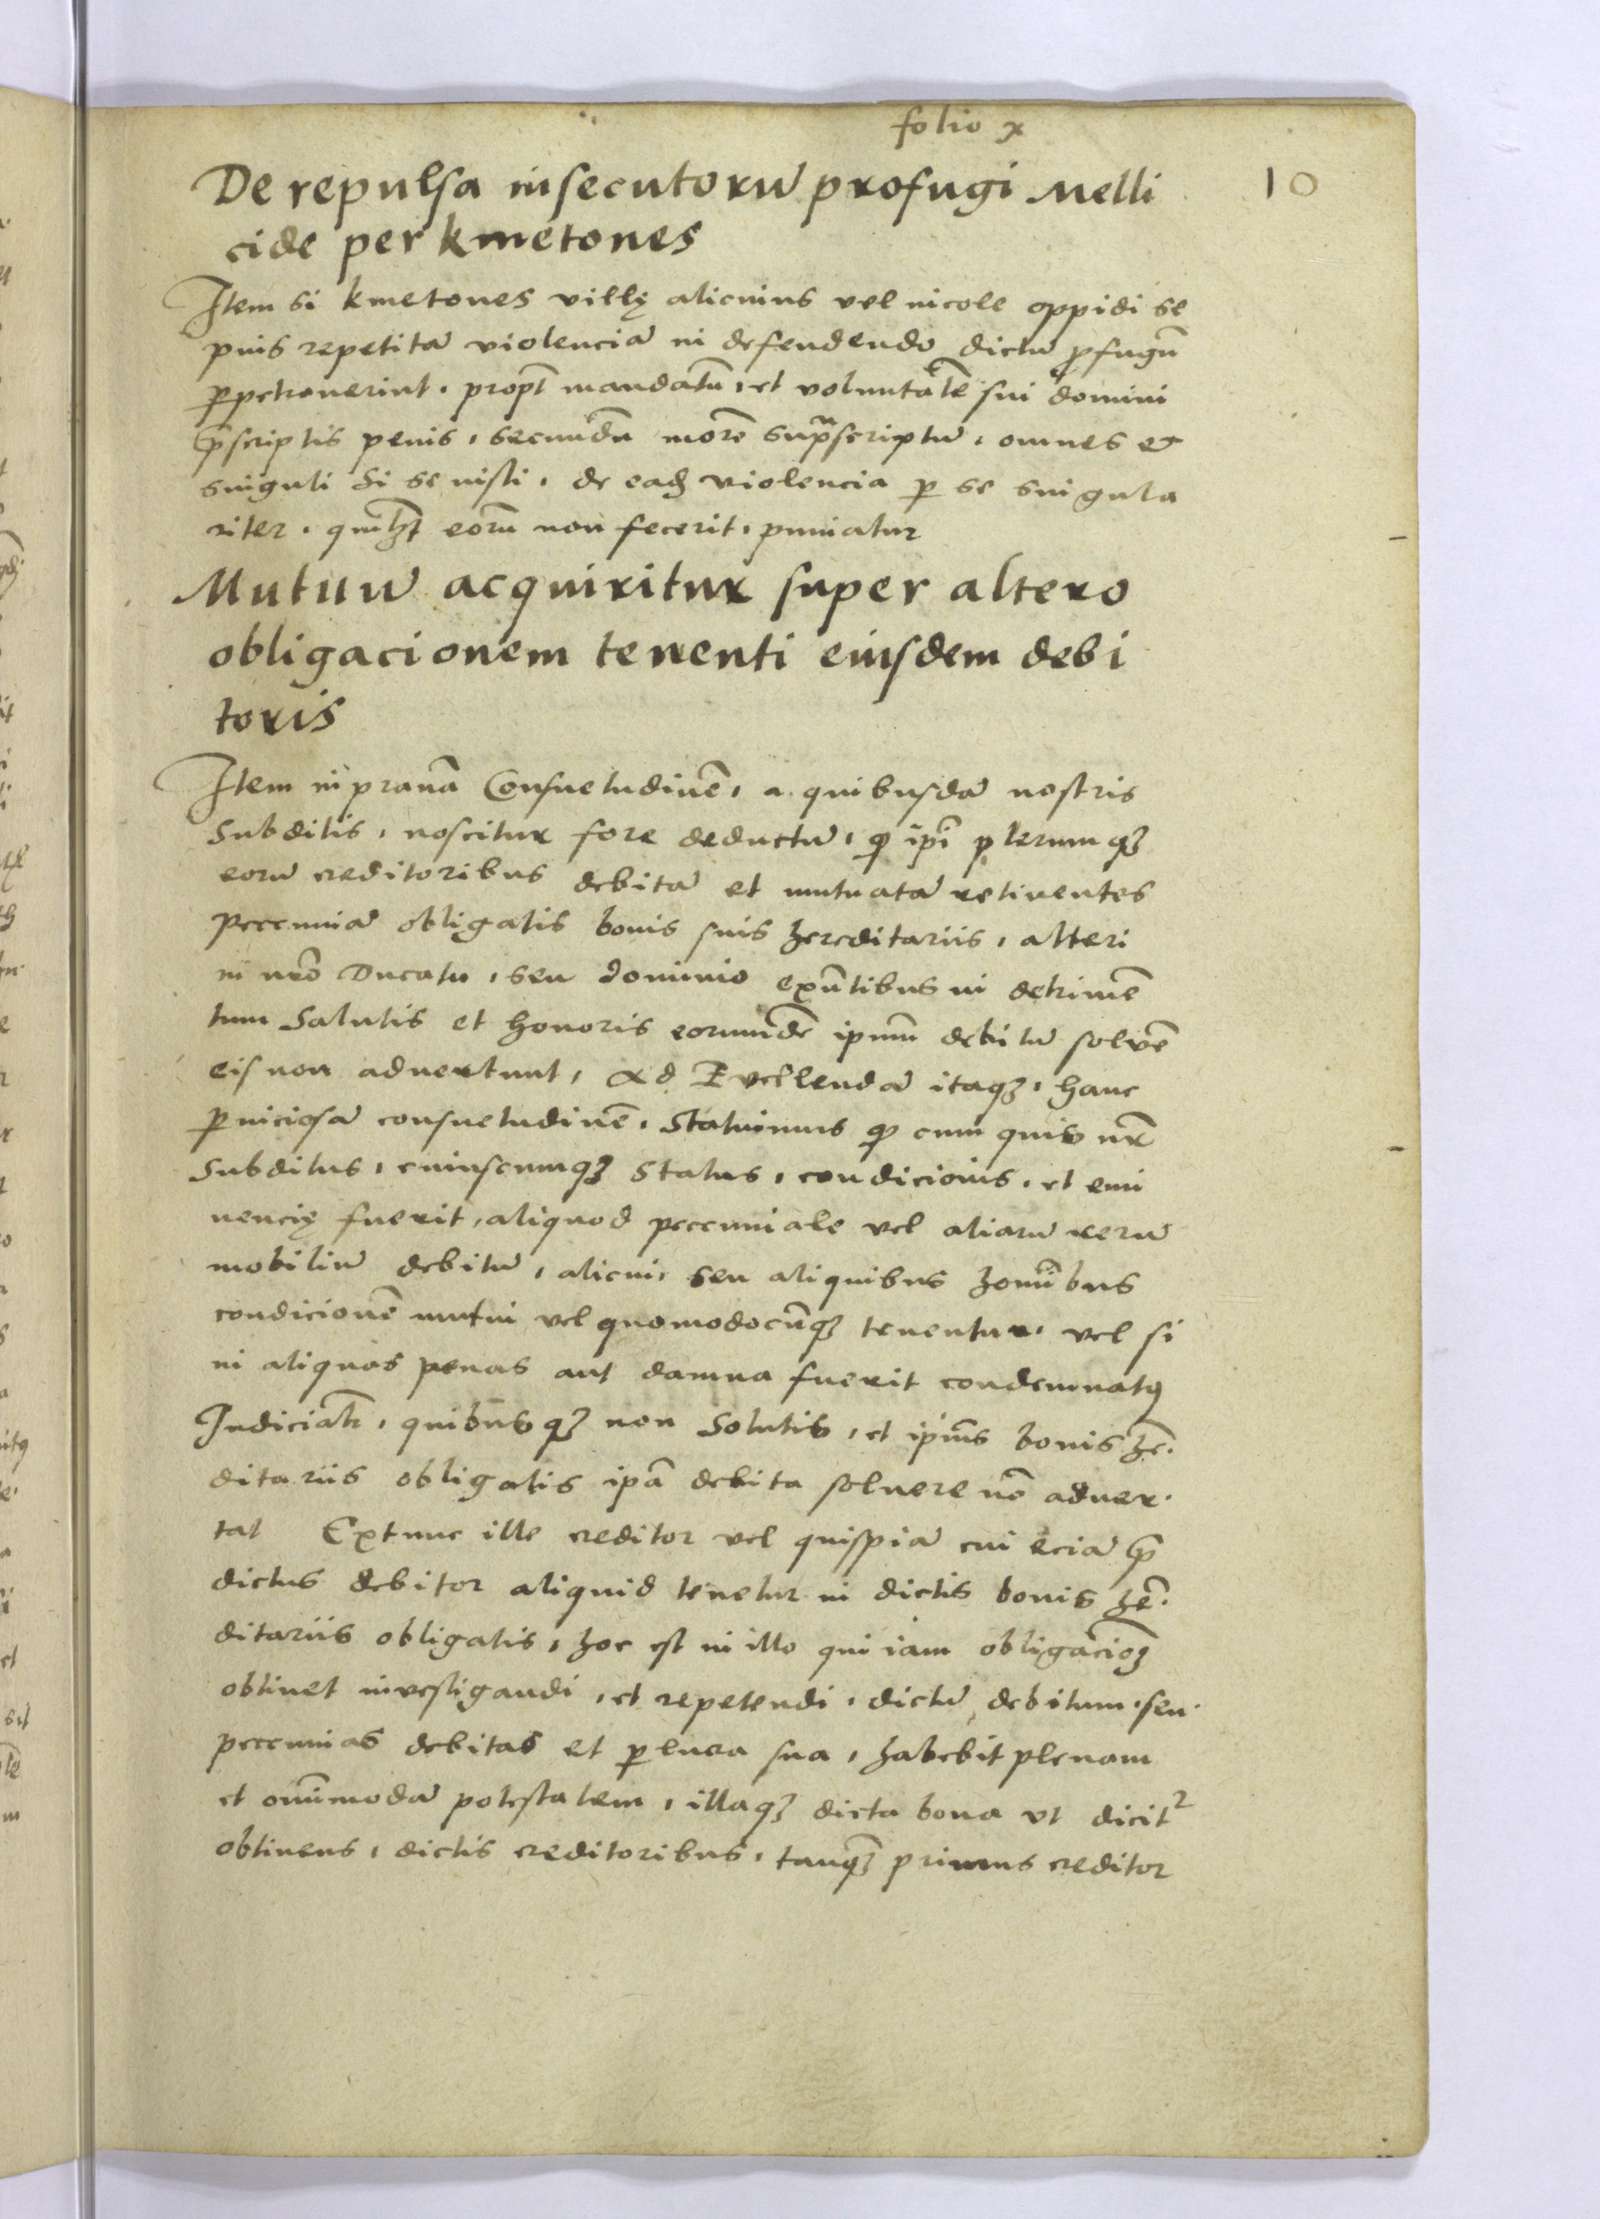 folio x
10
De repulsa insecutorū profugi Melli
cide per kmetones
Item si kmetones villę alicuius vel incole oppidi se
pius repetitā violenciā in defendendo dictū ꝓfugū
ꝑpetrauerint, propt mandatū, et voluntatē sui domini
p̄scriptis penis, secundū morē sup̄scriptū, omnes et
singuli si se iusti, de eadȝ violencia ꝑ se singula
riter, eorū non fecerit, puniatur
Mutuū acquiritur super altero
obligacionem tenenti eiusdem debi
toris
Item in prauā Consuetudinē, a quibusdā nostris
Subditis, noscitur fore deductū, ꝙ ip̄i plerumqȝ
eorū creditoribus debitā et mutuatā retinentes
Peccuniā obligatis bonis suis hereditariis, alteri
in nr̄o Ducatu, seu dominio exn̄tibus in detrimē
tum Salutis et honoris eorundē ip̄um debitū soluē
eis non aduertunt, Ad Euellendā itaqȝ, hanc
ꝑniciosā consuetudinē, Statuimus ꝙ cum quis nr̄
Subditus, cuiuscumqȝ Status, condicionis, et emi
nencię fuerit, aliquod peccuniale vel aliarū rerū
mobiliū debitū, alicui, seu aliquibus homībus
condicionē mutui vel quomodocūqȝ tenentur, vel si
in aliquas penas aut damna fuerit condemnatꝰ
Judicialr̄, quibus qȝ non Solutis, et ip̄ius bonis he.
ditariis obligatis ip̄a debita soluere nō aduer.
tat Extunc ille creditor vel quispiā cui eciā p̄
dictus debitor aliquid tenetur in dictis bonis he.
ditariis obligatis, hoc est in illo qui iam obligacioȝ
obtinet inuestigandi, et repetendi, dictū debitum, seu.
peccunias debitas et ꝑ lucra sua, habebit plenam
et omīmodā potestatem, illaqȝ dicta bona vt dicit²
obtinens, dictis creditoribus, tanqȝ primus creditor